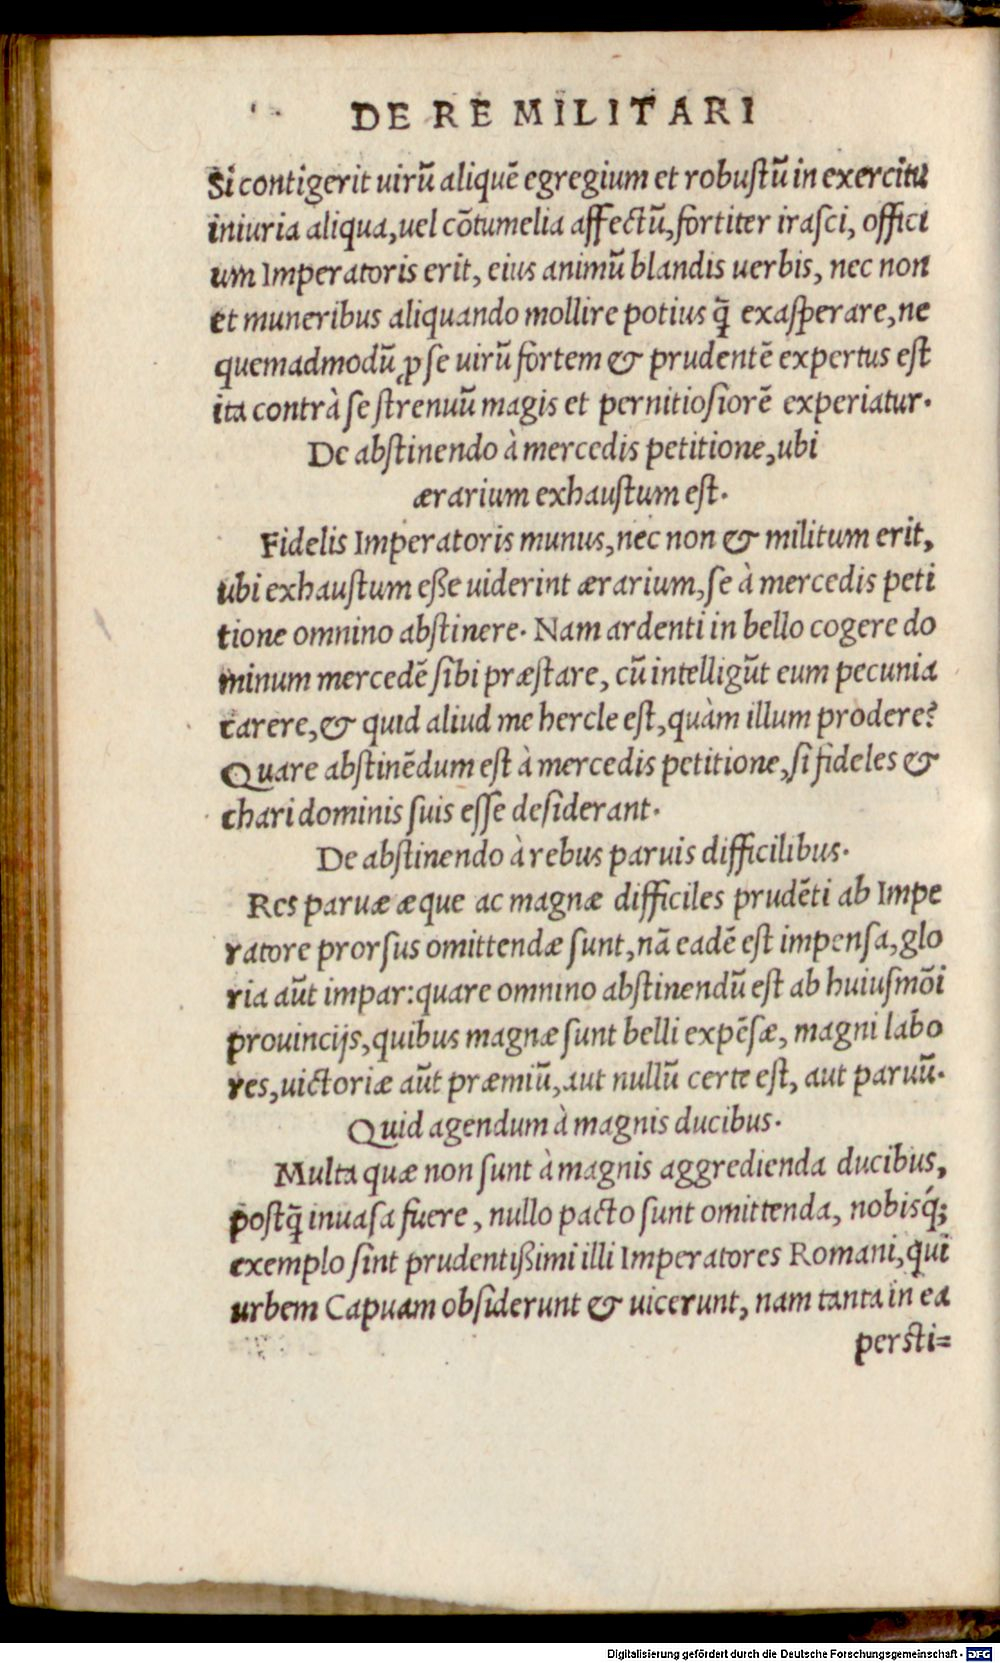 DE RE MILITARI
Si contigerit uirũ aliquẽ egregium et robuſtũ in exercitu
iniuria aliqua,uel cõtumelia affectũ,fortiter iraſci, offici
um Imperatoris erit, eius animũ blandis uerbis, nec non
et muneribus aliquando mollire potius q̃ exaſperare,ne
quemadmodũ ꝓ ſe uirũ fortem & prudentẽ expertus eſt
ita contrà ſe ſtrenuũ magis et pernitioſiorẽ experiatur.
De abſtinendo à mercedis petitione,ubi
ærarium exhauſtum eſt.
Fidelis Imperatoris munus,nec non & militum erit,
ubi exhauſtum eße uiderint ærarium,ſe à mercedis peti
tione omnino abſtinere. Nam ardenti in bello cogere do
minum mercedẽ ſibi præſtare, cũ intelligũt eum pecunia
carere,& quid aliud me hercle eſt,quàm illum prodere?
Quare abſtinẽdum eſt à mercedis petitione,ſi fideles &
chari dominis ſuis eſſe deſiderant.
De abſtinendo à rebus paruis difficilibus.
Res paruæ æque ac magnæ difficiles prudẽti ab Impe
ratore prorſus omittendæ ſunt,nã eadẽ eſt impenſa,glo
ria aũt impar:quare omnino abſtinendũ eſt ab huiuſmõi
prouincijs,quibus magnæ ſunt belli expẽſæ, magni labo
res,uictoriæ aũt præmiũ,aut nullũ certe eſt, aut paruũ.
Quid agendum à magnis ducibus.
Multa quæ non ſunt à magnis aggredienda ducibus,
poſtq̃ inuaſa fuere, nullo pacto ſunt omittenda, nobisq́;
exemplo ſint prudentißimi illi Imperatores Romani,qui
urbem Capuam obſiderunt & uicerunt, nam tanta in ea
perſti=
Digitalisierung gefördert durch die Deutsche Forschungsgemeinschaft - DFG